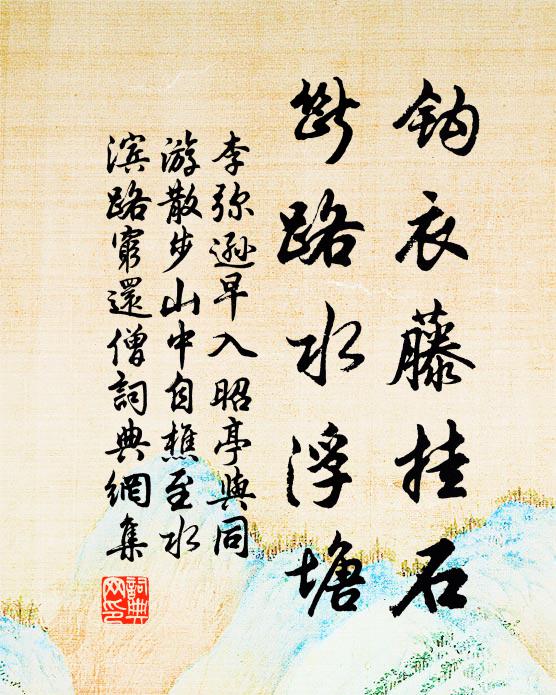 钩衣藤挂石
断路水浮塘
李弥逊早入昭亭与同
游散步山中自樵至水
滨路穷还僧词典网集
词典网印